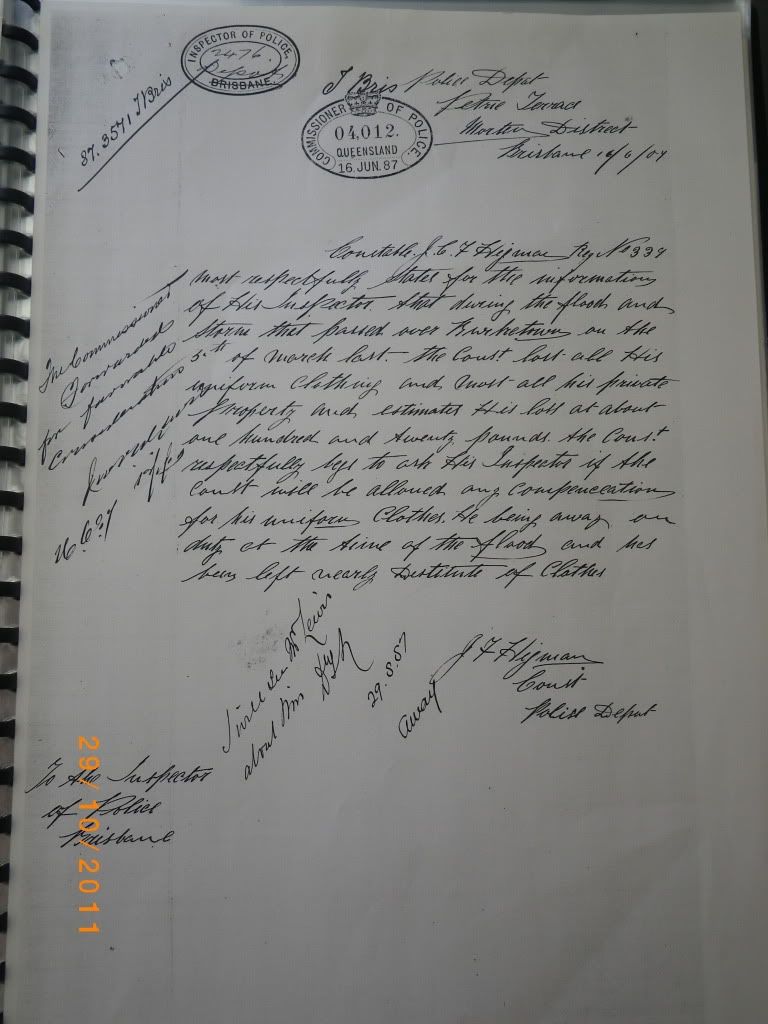 INSPECTOR OF POLICE,
2476
Depot
BRISBANE
87. 3571 J Bris
J Bris Police Depot
Petrie Terrad
Morton District
Brisbane 16/6/87
COMMISSIONER OF POLICE.
04,012.
QUEENSLAND
16. JUN. 87
Constable J. C. F Higman Reg No 339
most respectfully states for the information
of His Inspector. that during the flood and
Storm that passed over Burketown on the
5th of March last the Const lost all His
uniform Clothing and most all his private
Property and estimates His loss at about
one hundred and twenty pounds. the Const
respectfully begs to ask His Inspector if the
Const will be allowed any compenceation
for his uniform Clothes. He being away on
duty at the time of the flood and has
been left nearly Distitute of Clothes
J F Higman
Const
Police Depot
The Commissioner
Forwarded
for favorable
Consideration
16.6.87
I will see Mr Lewis
about this
29.8.87
away
To the Inspector
of Police
Brisbane
29/10/2011